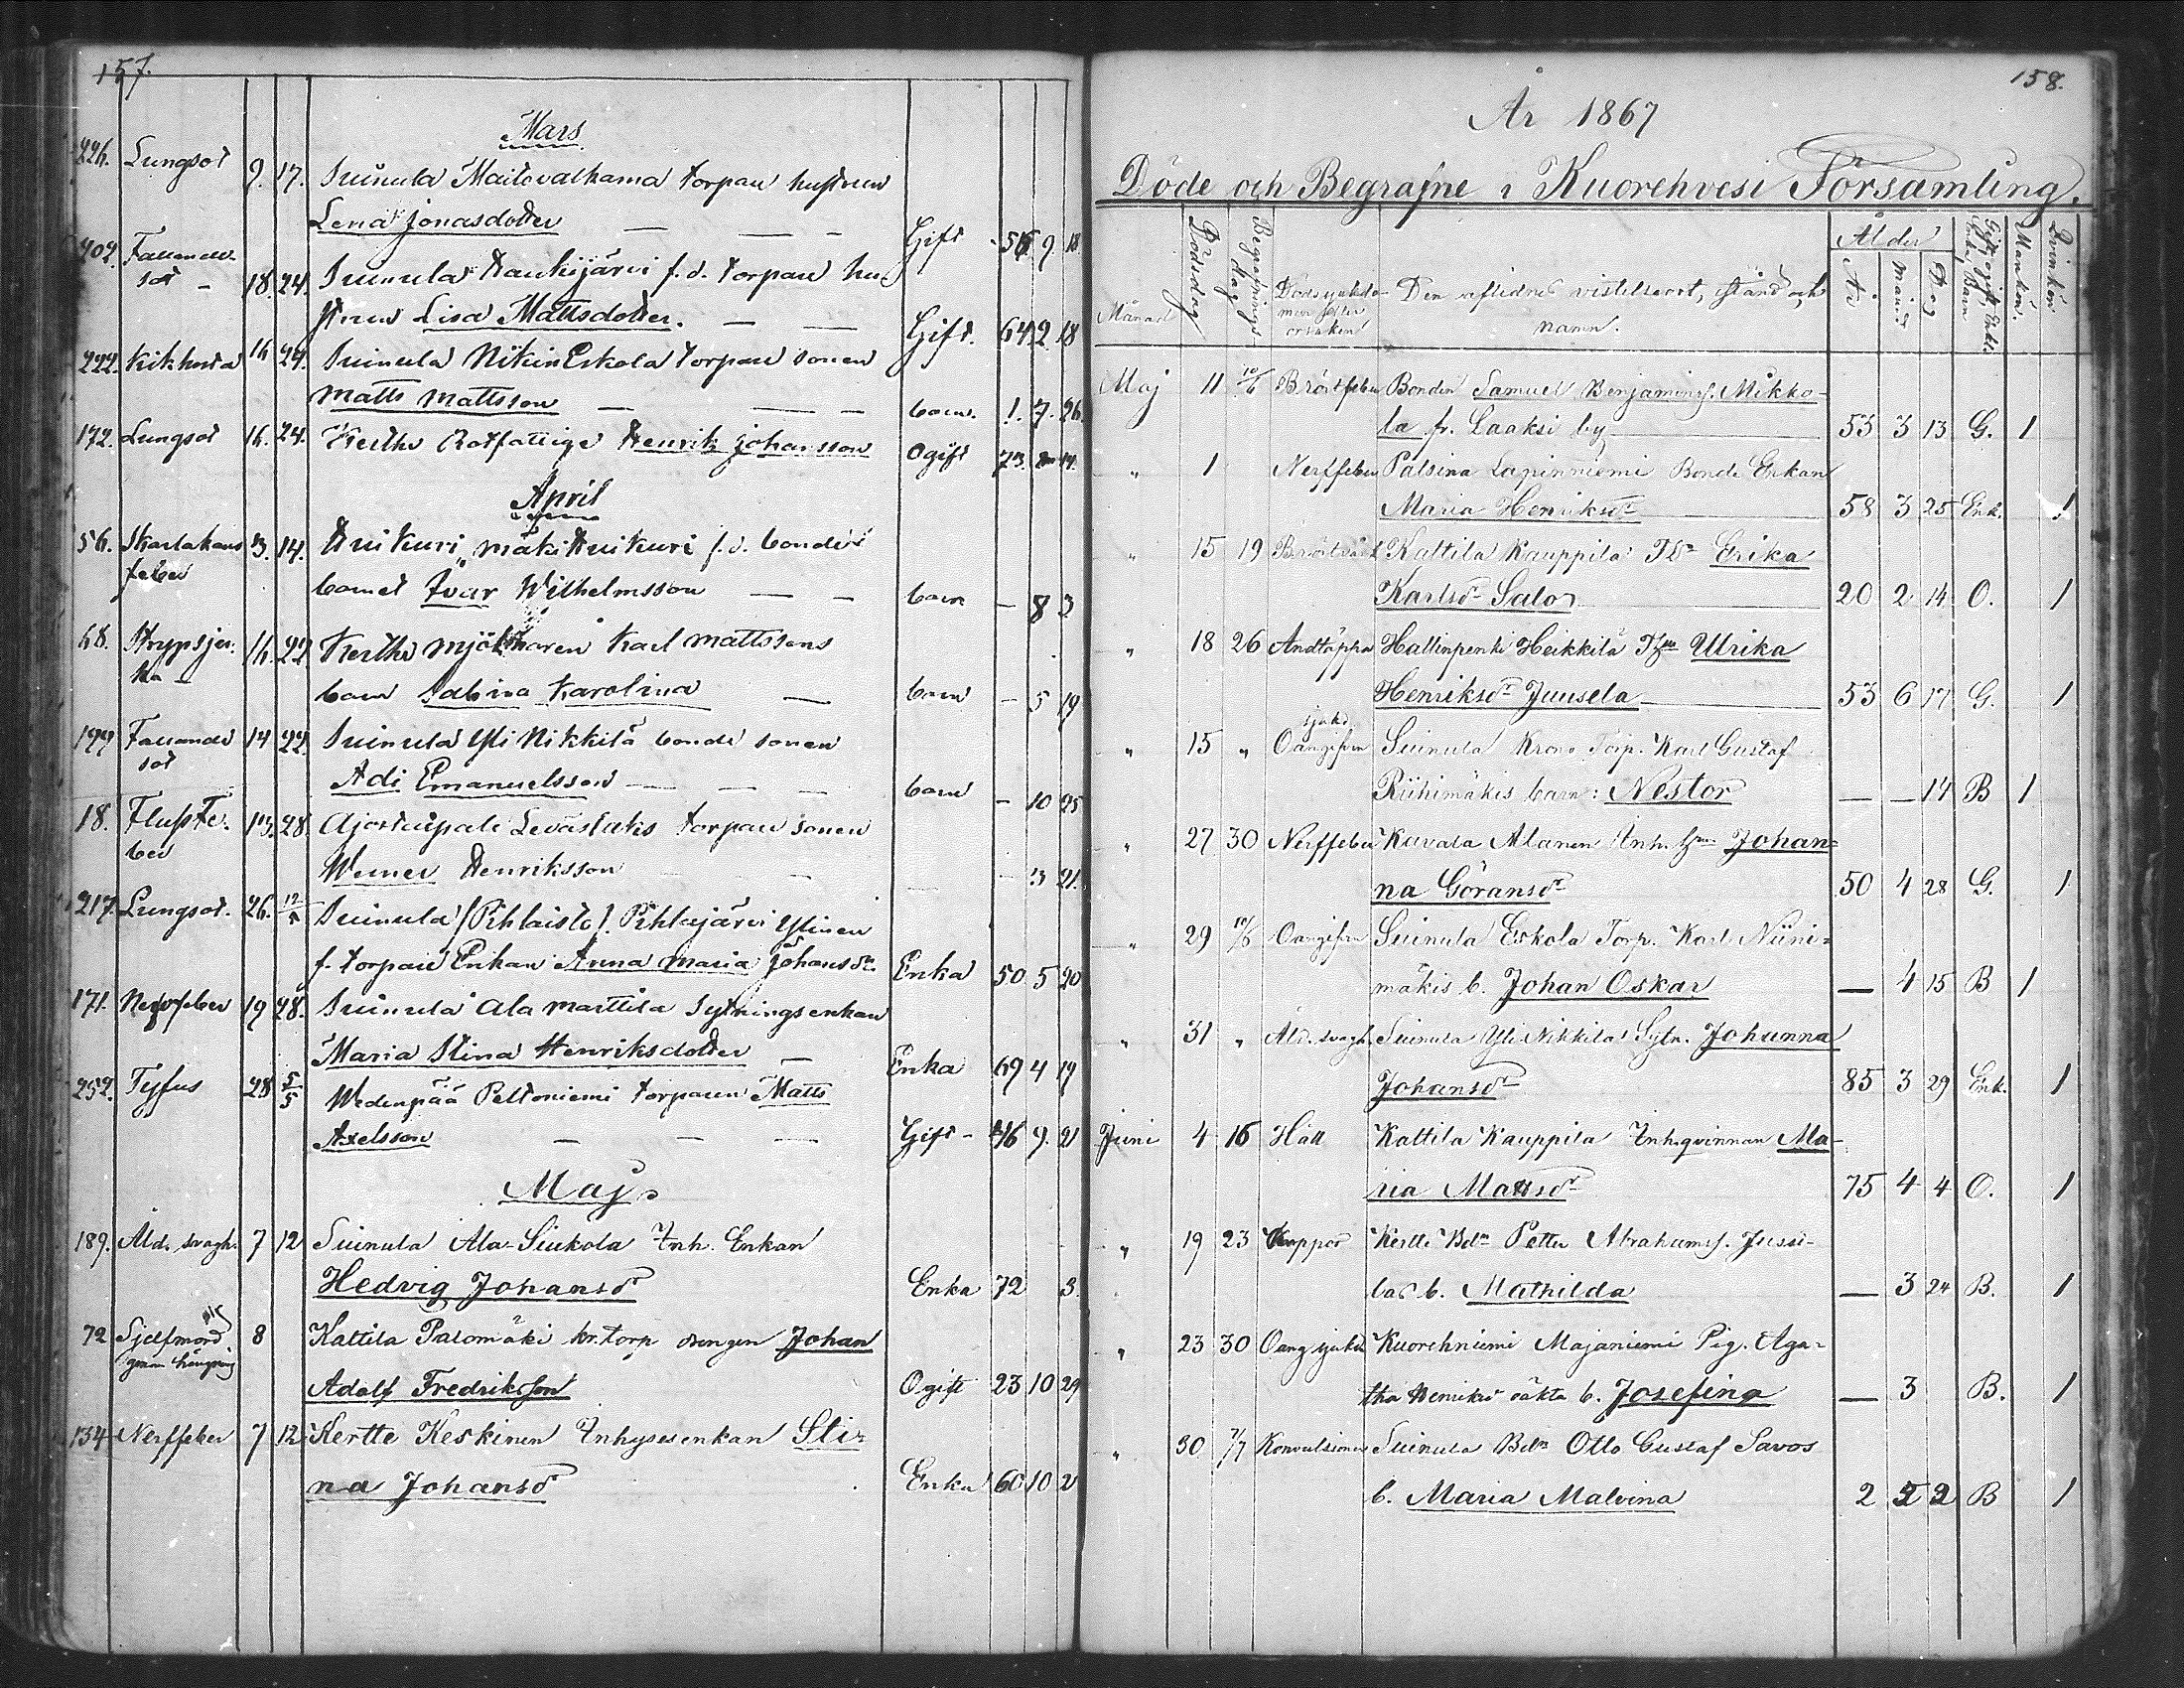 157.
Mars
226. Lungsot 9. 17. Suinula Maitovalkama torpare hustrun
Lena Jonasdotter — — — Gift 56 9. 18
202. Fallande 18. 24. Suinula Haukijärvi f. d. torpare hu
sot —
strun Lisa Mattsdotter. — — Gift. 64 2. 18
222. Kikhosta 16 24. Suinula Nikin Eskola torpare sonen
Matts Mattsson — — — barn. 1. 7. 26.
172. Lungsot 16. 24. Kertte Rotfattige Henrik Johansson Ogift 73. 14.
April
56. Skarlakans 3. 14. Huikuri, mäki Huikuri f. d. bonde
feber
barnet Ivar Wilhelmsson — — barn — 8 3
68. Strypsju- 16. 22 Kertte mjölnaren Karl Mattssons
ka —
barn Sabina Karolina — barn — 5 19
Fallande 14 22. Suinula Yli Nikkilä bonde sonen
sot
Adi Emanuelsson — — — barn — 10 25
18. Flussfe- 13. 28 Ajostaipale Leväslaks torpare sonen
ber
Werner Henriksson — — — — 3 21.
217. Lungsot. 26. 12/5 Suinula (Pihlaisto). Pihlajärvi Ylinen
f. torpare Enkan Anna Maria Johansdr. Enka 50 5 20
171. Nervfeber 19 28. Suinula Ala Marttila Sytningsenkan
Maria Stina Henriksdotter — Enka 69 4 19
252. Tyfus 28 5/5 Wedenpää Peltoniemi torparen Matts
Axelsson — — — Gift - 46 9. 21
Maj
189. Åld. svagh. 7 12 Suinula Ala-Siukola Inh. Enkan
Hedvig Johansdr Enka 72 3.
72 Sjelfmord 8 Kattila Palomäki kr. torp drengen Johan
genom hängning
Adolf Fredriksson Ogift 23 10 29
134 Nerffeber 7 12 Kertte Keskinen Inhysesenkan Sti-
na Johansdr Enka 60 10 2
158.
År 1867
Döde och Begrafne i Kuorehvesi Församling.
Månad Dödsdag Begrafnings dag Dödssjukdo- Den aflidnes vistelseort, stånd och Ålder Mankön. Qvinkön
men eller orsaken namn. År. Månad Dag
Maj 11 10/6 Bröstfeber Bonden Samuel Benjaminss. Mikko-
la fr. Laaksi by 53 3 13 G. 1
" 1 Nerffeber Palsina Lapinniemi Bonde Enkan
Maria Henriksdr 58 3 25 Enk. 1
" 15 19 Kattila Kauppila Erika
Karlsdr Salo 20 2 14 O. 1
" 18 26 Andtäppa Hallinpenki Heikkilä Ulrika
Henriksdr Juusela 53 6 17 G. 1
" 15 " sjukd. Oangifven Suinula Krono Torp. Karl Gustaf
Riihimäkis barn: Nestor — — 14 B 1
" 27 30 Nerffeber Kavala Alanen Inh. Johan-
na Göransdr 50 4 28 G. 1
" 29 10/6 Oangifven Suinula Eskola Torp. Karl Niini-
mäkis b. Johan Oskar — 4 15 B 1
" 31 " Åld. svagh. Suinula Yli Nikkilä Sytn. Johanna
Johansdr 85 3 29 Enk. 1
Juni 4 16 Håll Kattila Kauppila Inh. qvinnan Ma-
ria Mattsdr 75 4 4 O. 1
" 19 23 Koppor Kertte Bdn Petter Abrahamss. Jussi-
las b. Mathilda — 3 24 B. 1
" 23 30 Oang sjukd Kuorehniemi Majaniemi Pig. Aga-
tha Henriksd oäkta b. Josefina — 3 B. 1
" 30 7/7 Konvulsioner Suinula Bdn Otto Gustaf Savos
b. Maria Malvina 2 5 2 B 1